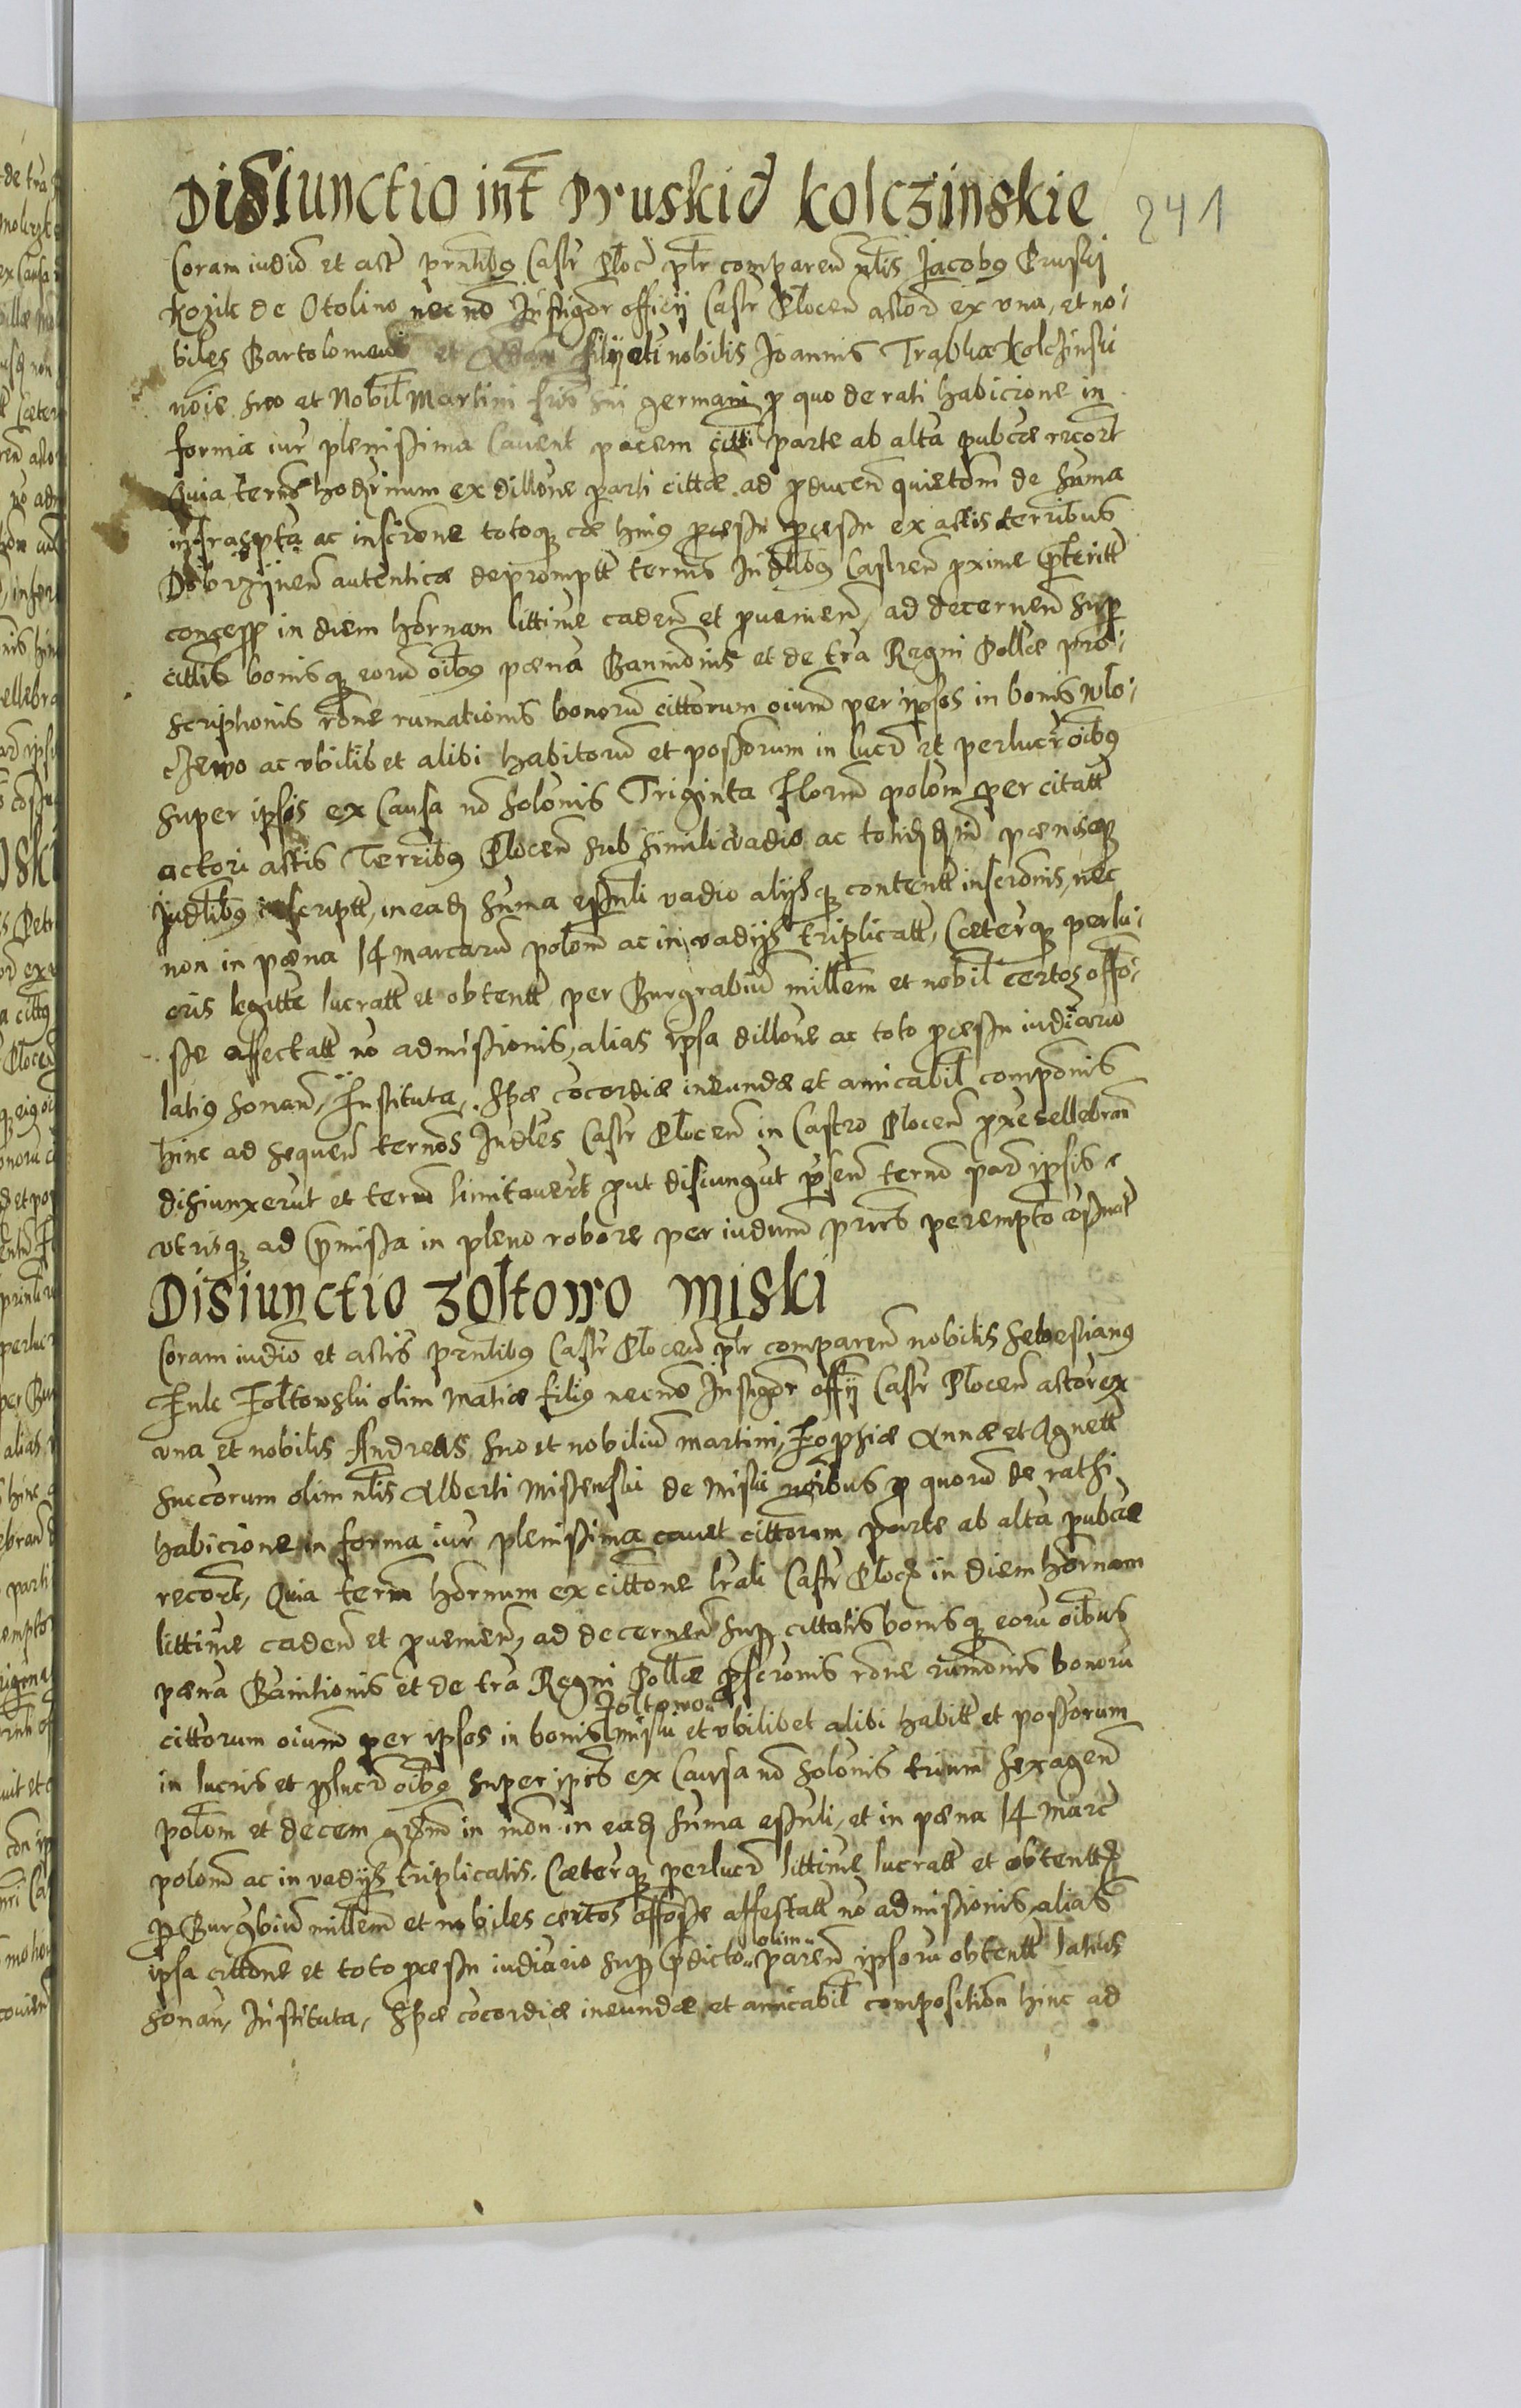 241
Disiunctio int Pruskie kolczinskie
Coram iudio et actis prntibus Castr Ploc pltr comparen nlis Jacobus Pruski
kozik de Otolino nec no Instigator officij Castr Plocen actor ex vna, et no-
biles Bartolomeus et Adam filij olim nobilis Joannis Trabka kolczinski
noie suo et Nobil Martini fris sui germani p quo de rati habicione in
forma iur plenissima Cavent pacem citti parte ab alta pubce recort
Quia termn hodirnum ex dillone parti cittae ad pducen quietom de suma
infrascpta ac inscrone totoq cae huius pcessu pcessu ex actis terribus
Dobrzijnen autentice depromptt termn Judlibus Castren pxime pteritt
concess in diem hornam littime caden et pvenien, ad decernen sup
cittis bonisq eoru oibus paena Bannionis et de tra Regni Pollae pro-
scriptionis rone rumationis bonoru cittorum oium per ipsos in bonis wlo-
czewo ac vbilibet alibi habitoru et possorum in lucr et perlucr oibus
super ipsis ex Causa no solonis Triginta Floren polom per citatt
actori actis Terribus Plocen sub simili vadio ac totid paenisq
Judlibus inscriptt, in ead suma essnli vadio alijsq contentt inscronis, nec
non in paena 14 marcaru polom ac in vadijs triplicatt, Caeterq perlu-
cris legitte lucratt et obtentt per Burgrabiu millem et nobil certos offo-
sse affectatt no admissionis, alias ipsa dillone ac toto pcessu iudiario
latius sonan, Instituta, Spe cocordiae ineundae et amicabil componis
hinc ad sequen termos Judles Castr Plocen in Castro Plocen pxe cellebran
disiunxerut et termn limitavert put disiungut psen termo par ipsis
vtrisq ad pmissa in pleno robore per iudium prns perempto assnat
Disiunctio zoltowo miski
Coram iudio et actis prntibus Castr Plocen pltr comparen nobilis Sebestianus
Fulc Zoltowski olim Matiae filius necno Instigor offij Castr Plocen actor ex
vna et nobilis Andreas suo et nobiliu martini, Zophiae Annae et Agnett
succorum olim nlis Alberti Missewski de Miski noibus p quoru de rathi
habicione in forma iur plenissima cavet cittorum parte ab alta pubce
recort, Quia termn hornum ex cittone lrali Castr Ploc in diem hornam
littime caden et pvenien, ad decernen sup cittatis bonisq eoru oibus
paena Banitionis et de tra Regni Pollae pscronis rone rumonis bonoru
Zoltowo
cittorum oium per ipsos in bonis miski et vbilibet alibi habitt et possorum
in lucris et plucr oibus super ipis ex Causa no solonis trium sexagen
polom et decem grosm in mon in ead suma essnli, et in paena 14 marc
polom ac in vadijs triplicatis. Caeterq perlucr littime lucratt et obtentt
p Burgbium millem et nobiles certos offosse affectatt no admissionis, alias
olim
ipsa cittone et toto pcessu iudiario sup pdicto paren ipsoru obtentt latius
sonan, Instituta, Spe cocordiae ineundae et amicabil composition hinc ad